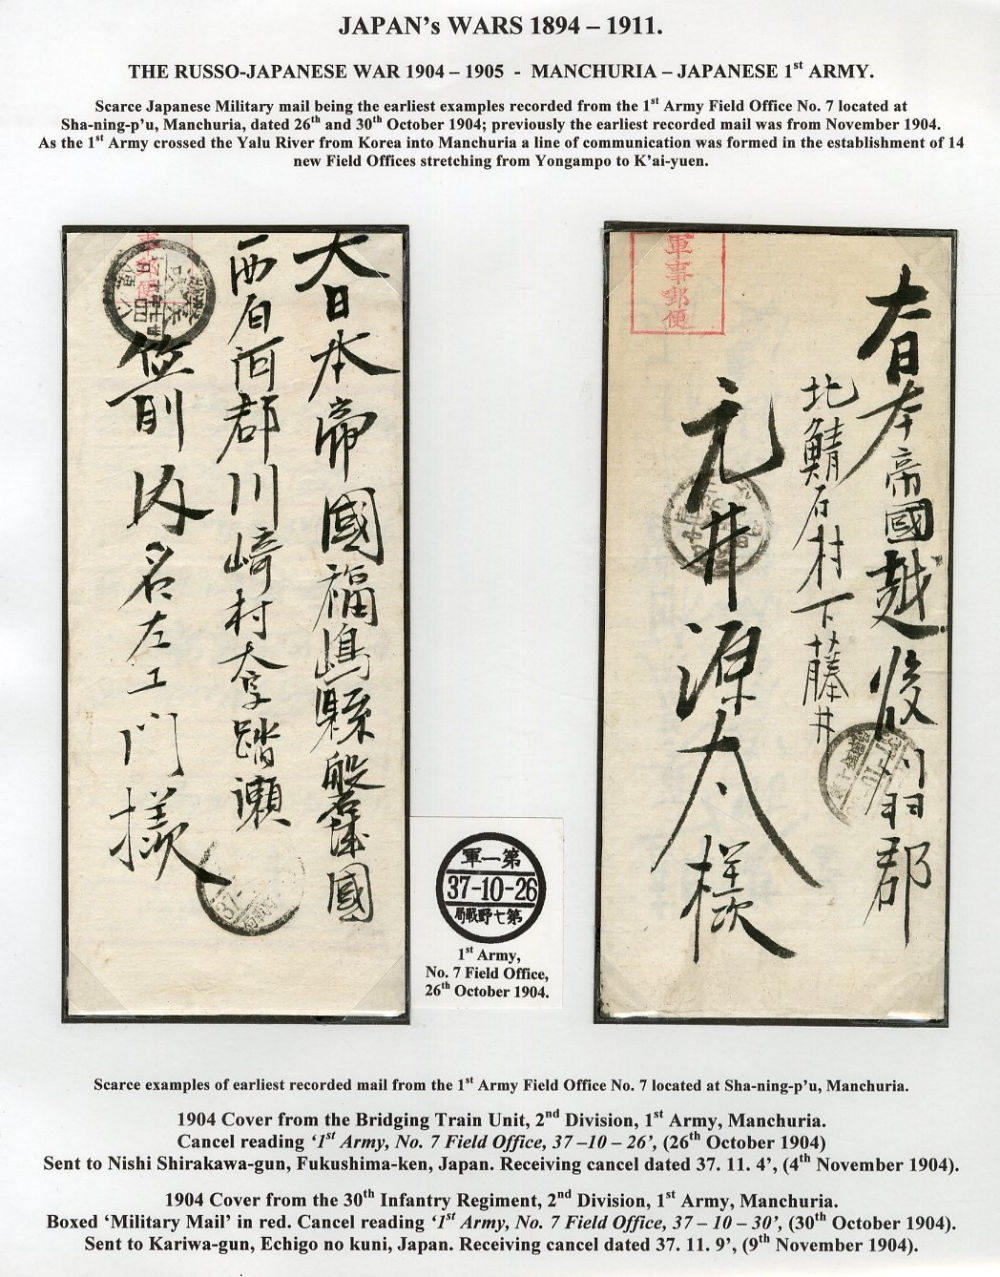 JAPAN's WARS 1894 – 1911.
THE RUSSO-JAPANESE WAR 1904 – 1905 - MANCHURIA – JAPANESE 1st ARMY.
Scarce Japanese Military mail being the earliest examples recorded from the 1st Army Field Office No. 7 located at
Sha-ning-p'u, Manchuria, dated 26th and 30th October 1904; previously the earliest recorded mail was from November 1904.
As the 1st Army crossed the Yalu River from Korea into Manchuria a line of communication was formed in the establishment of 14
new Field Offices stretching from Yongampo to K'ai-yuen.
大日本帝國福嶋縣般磐城國
西白河郡川崎村大字踏瀬
箭内名左工門様
軍事郵便
大日本帝國越後刈羽郡
北鯖石村下藤井
元井源太様
軍一第
37-10-26
局戰野七第
1st Army,
No. 7 Field Office,
26th October 1904.
Scarce examples of earliest recorded mail from the 1st Army Field Office No. 7 located at Sha-ning-p'u, Manchuria.
1904 Cover from the Bridging Train Unit, 2nd Division, 1st Army, Manchuria.
Cancel reading '1st Army, No. 7 Field Office, 37 –10 – 26', (26th October 1904)
Sent to Nishi Shirakawa-gun, Fukushima-ken, Japan. Receiving cancel dated 37. 11. 4', (4th November 1904).
1904 Cover from the 30th Infantry Regiment, 2nd Division, 1st Army, Manchuria.
Boxed 'Military Mail' in red. Cancel reading '1st Army, No. 7 Field Office, 37 – 10 – 30', (30th October 1904).
Sent to Kariwa-gun, Echigo no kuni, Japan. Receiving cancel dated 37. 11. 9', (9th November 1904).